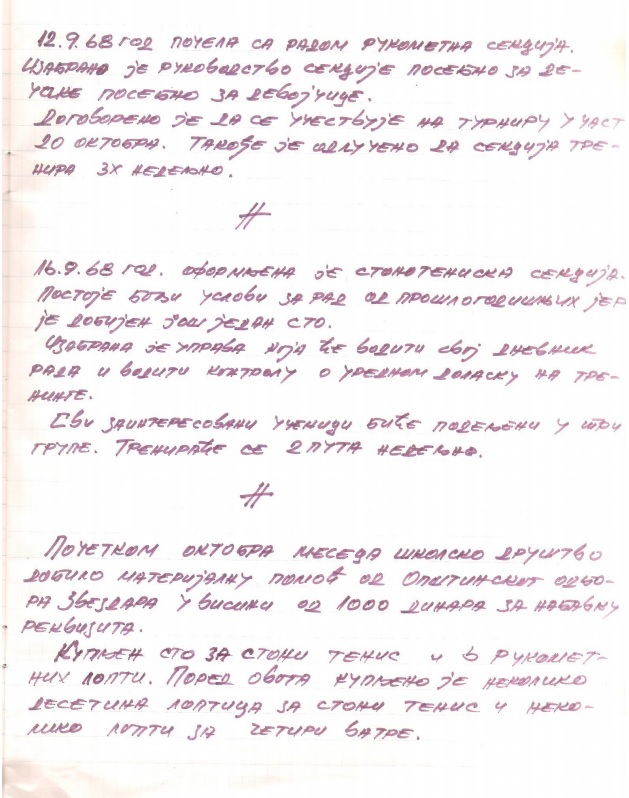 12.9.68 ГОД ПОЧЕЛА СА РАДОМ РУКОМЕТНА СЕКЦИЈА.
ИЗАБРАНО ЈЕ РУКОВОДСТВО СЕКЦИЈЕ ПОСЕБНО ЗА ДЕ-
ЧАКЕ ПОСЕБНО ЗА ДЕВОЈЧИЦЕ.
ДОГОВОРЕНО ЈЕ ДА СЕ УЧЕСТВУЈЕ НА ТУРНИРУ У ЧАСТ
20 ОКТОБРА. ТАКОЂЕ ЈЕ ОДЛУЧЕНО ДА СЕКЦИЈА ТРЕ-
НИРА 3Х НЕДЕЉНО.
#
16.9.68 ГОД. ОФОРМЉЕНА ЈЕ СТОНОТЕНИСКА СЕКЦИЈА.
ПОСТОЈЕ БОЉИ УСЛОВИ ЗА РАД ОД ПРОШЛОГОДИШЊИХ ЈЕР
ЈЕ ДОБИЈЕН ЈОШ ЈЕДАН СТО.
ИЗАБРАНА ЈЕ УПРАВА КОЈА ЋЕ ВОДИТИ СВОЈ ДНЕВНИК
РАДА И ВОДИТИ КОНТРОЛУ О УРЕДНОМ ДОЛАСКУ НА ТРЕ-
НИНГЕ.
СВИ ЗАИНТЕРЕСОВАНИ УЧЕНИЦИ БИЋЕ ПОДЕЉЕНИ У ТРИ
ГРУПЕ. ТРЕНИРАЋЕ СЕ 2 ПУТА НЕДЕЉНО.
#
ПОЧЕТКОМ ОКТОБРА МЕСЕЦА ШКОЛСКО ДРУШТВО
ДОБИЛО МАТЕРИЈАЛНУ ПОМОЋ ОД ОПШТИНСКОГ ОДБО-
РА ЗВЕЗДАРА У ВИСИНИ ОД 1000 ДИНАРА ЗА НАБАВКУ
РЕКВИЗИТА.
КУПЉЕН СТО ЗА СТОНИ ТЕНИС И 6 РУКОМЕТ-
НИХ ЛОПТИ. ПОРЕД ОВОГА КУПЉЕНО ЈЕ НЕКОЛИКО
ДЕСЕТИНА ЛОПТИЦА ЗА СТОНИ ТЕНИС И НЕКО-
ЛИКО ЛОПТИ ЗА ЧЕТИРИ ВАТРЕ.